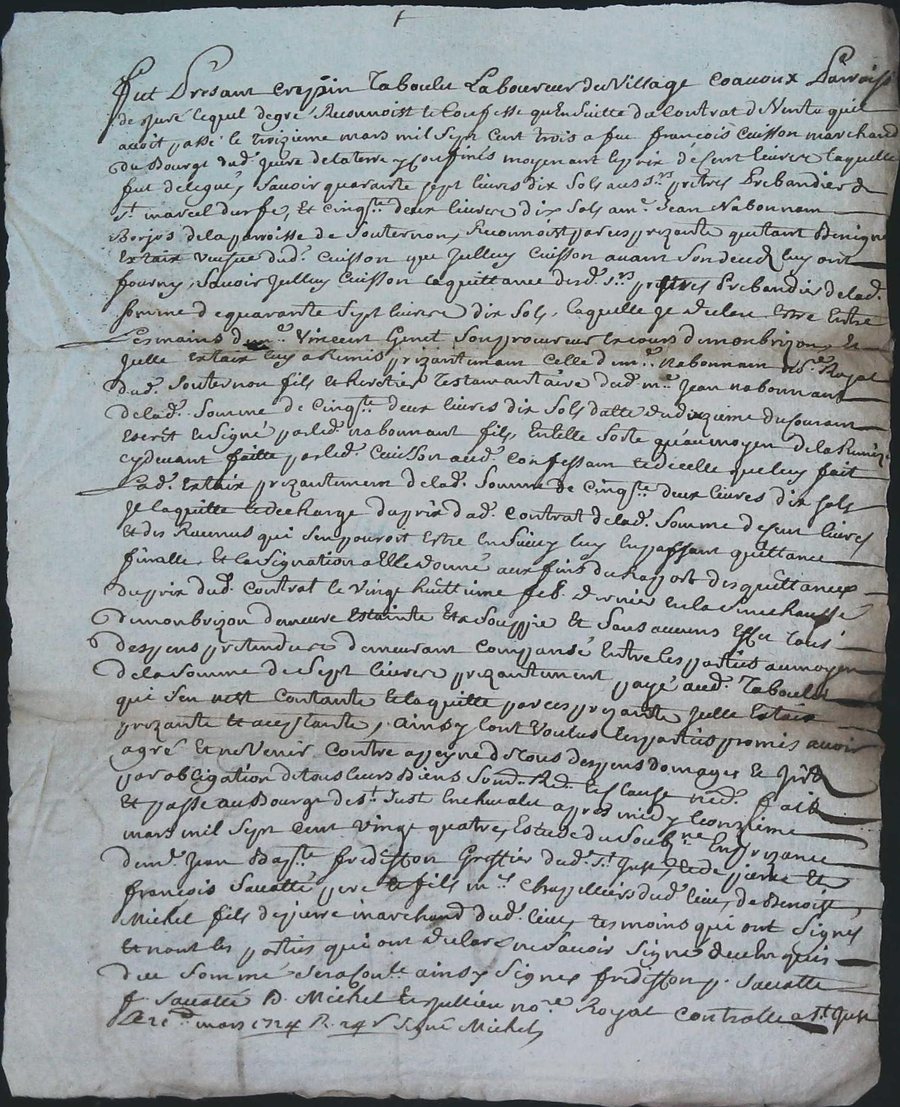 fut Présant Crespin Taboulet Laboureur du Village Coavoux Parroisse
de Jure lequel de gré Reconnoist et Confesse qu'En suitte du Contrat de Vente qui
avoit passé le treizième mars mil sept cent trois a feu françois Cuisson marchand
du Bourg dud. Jure de la terre y Confinés moyenant le prix de Cent livres laquelle
fut delegué, Savoir quarante sept livres dix sols aus Srs prêtres Prebandier de
St. marcel durfé, Et cinqte deux livres dix sols a mr. Jean Nabonnam
Borjos de la parroisse de Souternon, Reconnoist par ces prezante quitant Benigne
Extaix veufve dud. Cuisson que Jullien Cuisson avant son decedz luy ont
fourny, Savoir Jullien Cuisson la quittance desd. Srs prêtres Prebandier de lad.
somme de quarante Sept livres dix sols, laquelle Je declare Estre Entre
Les mains de me. Vincent Genet Son procureur Es cours de monbrizon, Et
Jelle Extaix luy a Remis prezantemam celle de mr. Nabonnam no.re Royal
dud. Souternon fils et heretier Testamantaire dud. me. Jean nabonnant
de lad. Somme de Cinqte deux livres dix Sols datté du dixieme du Couram
Escrit et Signé par led. nabonnant fils, En telle Sorte qu'au moyen de la Remize
cy devant faitte par led. Cuisson aud. Confessam et d'icelle que luy fait
Lad. Extaix prezantement de lad. Somme de Cinqte deux livres dix sols
Je la quitte et decharge du prix dud. Contrat de lad. Somme de Cent livres
Et des Revenus qui s'en pouroit Estre En Suivy luy En passant quittance
finalle, Et l'assignation a Elle donné aux fins du Rapport des quittances
du prix dud. Contrat le vingt huittieme feb. dernier En la Senechaussé
de monbrizon demeure Estainte Et Souppie Et Sans aucuns Effet Tous
despens pretendus demeurant Compansé Entre les parties au moyen
de la Somme de Sept livres prezantement payé aud. Taboulet
qui s'en tient Contante Et la quitte par ces prezante Jelle Extaix
prezante Et acceptante, Ainsy l'ont voulus Les parties promis avoir
agré Et ne venir Contre a peyne de tous despens domages Et Jnts
par obligation de tous leurs Biens Soum. Ren. Et Clause nec. fait
Et passé au Bourg de St. Just En chevalet apres midy l'onzieme
mars mil Sept cent vingt quatre, Estude du Soub.né En prezance
de me. Jean Bapte. fredisson Greffier dud. St. Just, Et de pierre Et
françois Savatte pere Et fils mes. Chappelliers dud. lieu, de Benoist
Michel fils de pierre marchand dud. lieu, tesmoins qui ont Signés
Et nont les parties qui ont declaré ne Savoir Signé de ce Enquis
due Sommé Sera ainsy Signes fredisson p. Savatte
f. Savatte B. Michel Et Jullien no.re Royal Controllé a St. Just
Le mars 1724 R. Signé Michel